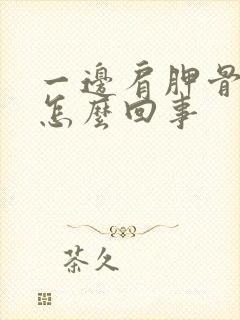 一邊肩胛骨
怎麼回事
茶久